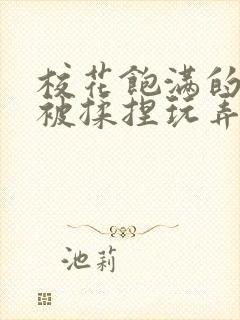 校花飽满的
被揉捏玩弄
池莉